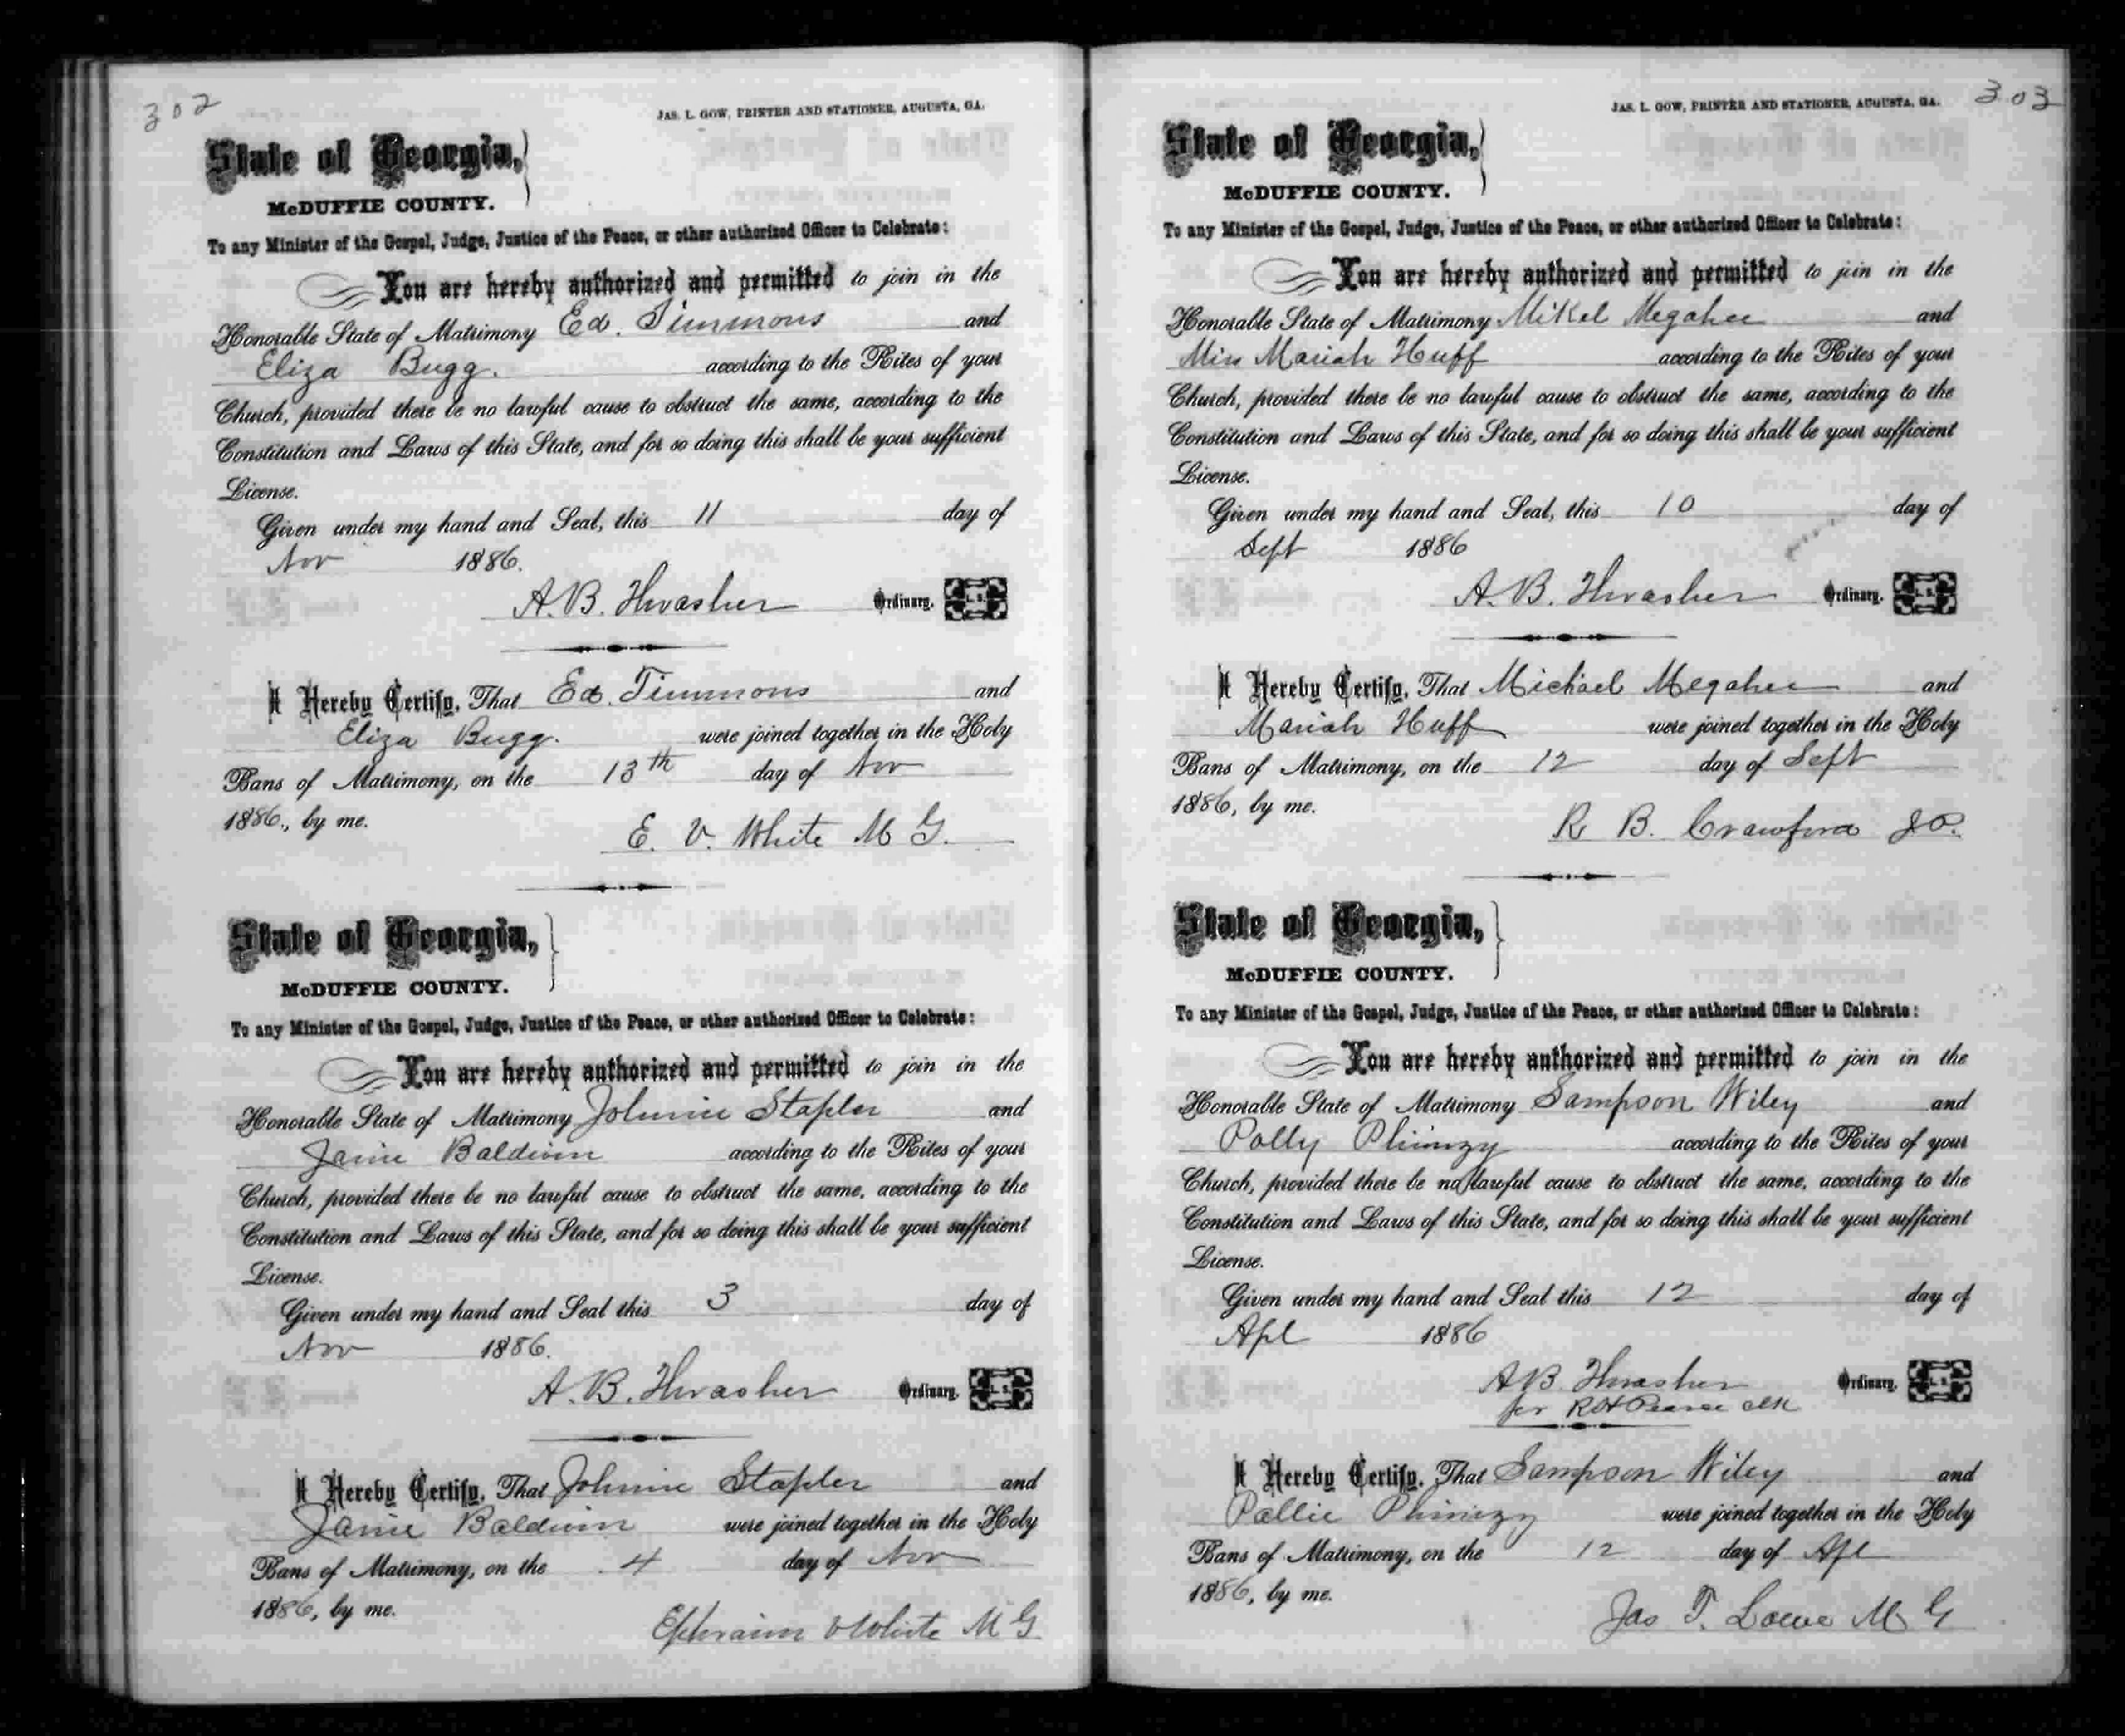 302
JAS. L. GOW, PRINTER AND STATIONER, AUGUSTA, GA.
State of Georgia,
McDUFFIE COUNTY.
To any Minister of the Gospel, Judge, Justice of the Peace, or other authorized Officer to Celebrate:
You are hereby authorized and permitted to join in the
Honorable State of Matrimony Ed. Timmons and
Eliza Bugg. according to the Rites of your
Church, provided there be no lawful cause to obstruct the same, according to the
Constitution and Laws of this State, and for so doing this shall be your sufficient
License.
Given under my hand and Seal, this 11 day of
Nov 1886.
A. B. Thrasher Ordinary. L. S.
I Hereby Certify, That Ed. Timmons and
Eliza Bugg. were joined together in the Holy
Bans of Matrimony, on the 13th day of Nov
1886., by me.
E. V. White M G.
State of Georgia,
McDUFFIE COUNTY.
To any Minister of the Gospel, Judge, Justice of the Peace, or other authorized Officer to Celebrate:
You are hereby authorized and permitted to join in the
Honorable State of Matrimony Johnnie Stapler and
Janie Baldwin according to the Rites of your
Church, provided there be no lawful cause to obstruct the same, according to the
Constitution and Laws of this State, and for so doing this shall be your sufficient
License.
Given under my hand and Seal this 3 day of
Nov 1886.
A. B. Thrasher Ordinary. L. S.
I Hereby Certify, That Johnnie Stapler and
Janie Baldwin were joined together in the Holy
Bans of Matrimony, on the 4 day of Nov
1886, by me.
Ephraim V White M G
303
JAS. L. GOW, PRINTER AND STATIONER, AUGUSTA, GA.
State of Georgia,
McDUFFIE COUNTY.
To any Minister of the Gospel, Judge, Justice of the Peace, or other authorized Officer to Celebrate:
You are hereby authorized and permitted to join in the
Honorable State of Matrimony Mikel Megahee and
Miss Mariah Huff according to the Rites of your
Church, provided there be no lawful cause to obstruct the same, according to the
Constitution and Laws of this State, and for so doing this shall be your sufficient
License.
Given under my hand and Seal, this 10 day of
Sept 1886
A. B. Thrasher Ordinary. L. S.
I Hereby Certify, That Michael Megahee and
Mariah Huff were joined together in the Holy
Bans of Matrimony, on the 12 day of Sept
1886, by me.
R B. Crawford J P.
State of Georgia,
McDUFFIE COUNTY.
To any Minister of the Gospel, Judge, Justice of the Peace, or other authorized Officer to Celebrate:
You are hereby authorized and permitted to join in the
Honorable State of Matrimony Sampson Wiley and
Polly Phinizy according to the Rites of your
Church, provided there be no lawful cause to obstruct the same, according to the
Constitution and Laws of this State, and for so doing this shall be your sufficient
License.
Given under my hand and Seal this 12 day of
Apl 1886
A B. Thrasher Ordinary. L. S.
per R H Pearce clk
I Hereby Certify, That Sampson Wiley and
Pallie Phinizy were joined together in the Holy
Bans of Matrimony, on the 12 day of Apl
1886, by me.
Jas T. Lowe M G